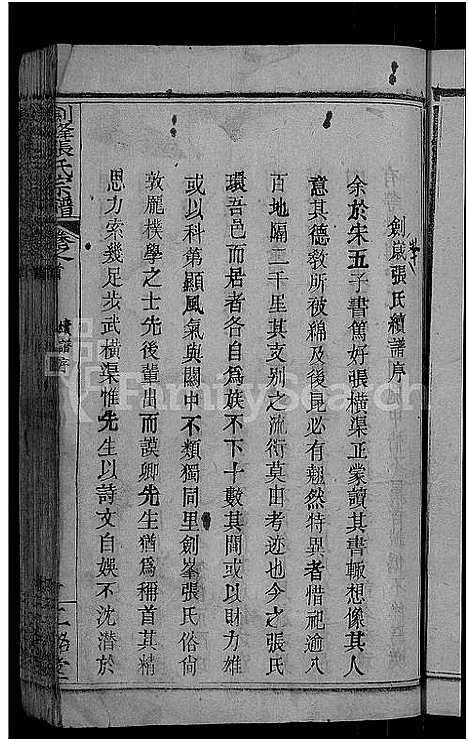 劍嶽張氏續譜序
余於宋五子書篤好張橫渠正蒙讀其書輒想像其人
意其德敎所被綿及後昆必有翹然特異者惜祀逾八
百地隔二千里其支別之流衍莫由考迹也今之張氏
環吾邑而居者各自爲族不下十數其間或以財力雄
或以科第顯風氣與關中不類獨同里劍峯張氏俗尙
敦龐樸學之士先後輩出而謨卿先生猶爲稱首其精
思力索幾足步武橫渠惟先生以詩文自娛不沈潛於
劍峯張氏宗譜
卷之首
續譜序
FamilySearch